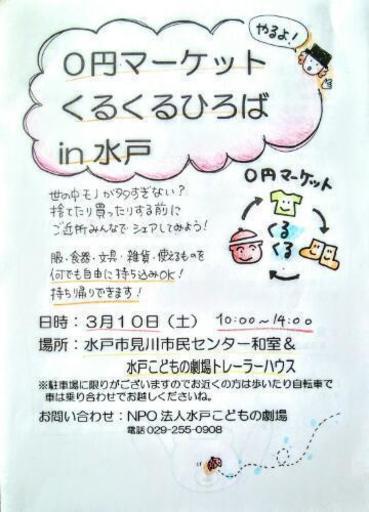 やるよ!
0円マーケット
くるくるひろば
in 水戸
世の中モノが多すぎない?
捨てたり買ったりする前に
ご近所みんなでシェアしてみよう!
0円マーケット
くる
くる
服・食器・文具・雑貨・使えるものを
何でも自由に持ち込みOK!
持ち帰りできます!
日時:3月10日(土) 10:00~14:00
場所:水戸市見川市民センター和室&
水戸こどもの劇場トレーラーハウス
※駐車場に限りがございますのでお近くの方は歩いたり自転車で
車は乗り合わせでお越しくださいね。
お問い合わせ:NPO法人水戸こどもの劇場
電話029-255-0908